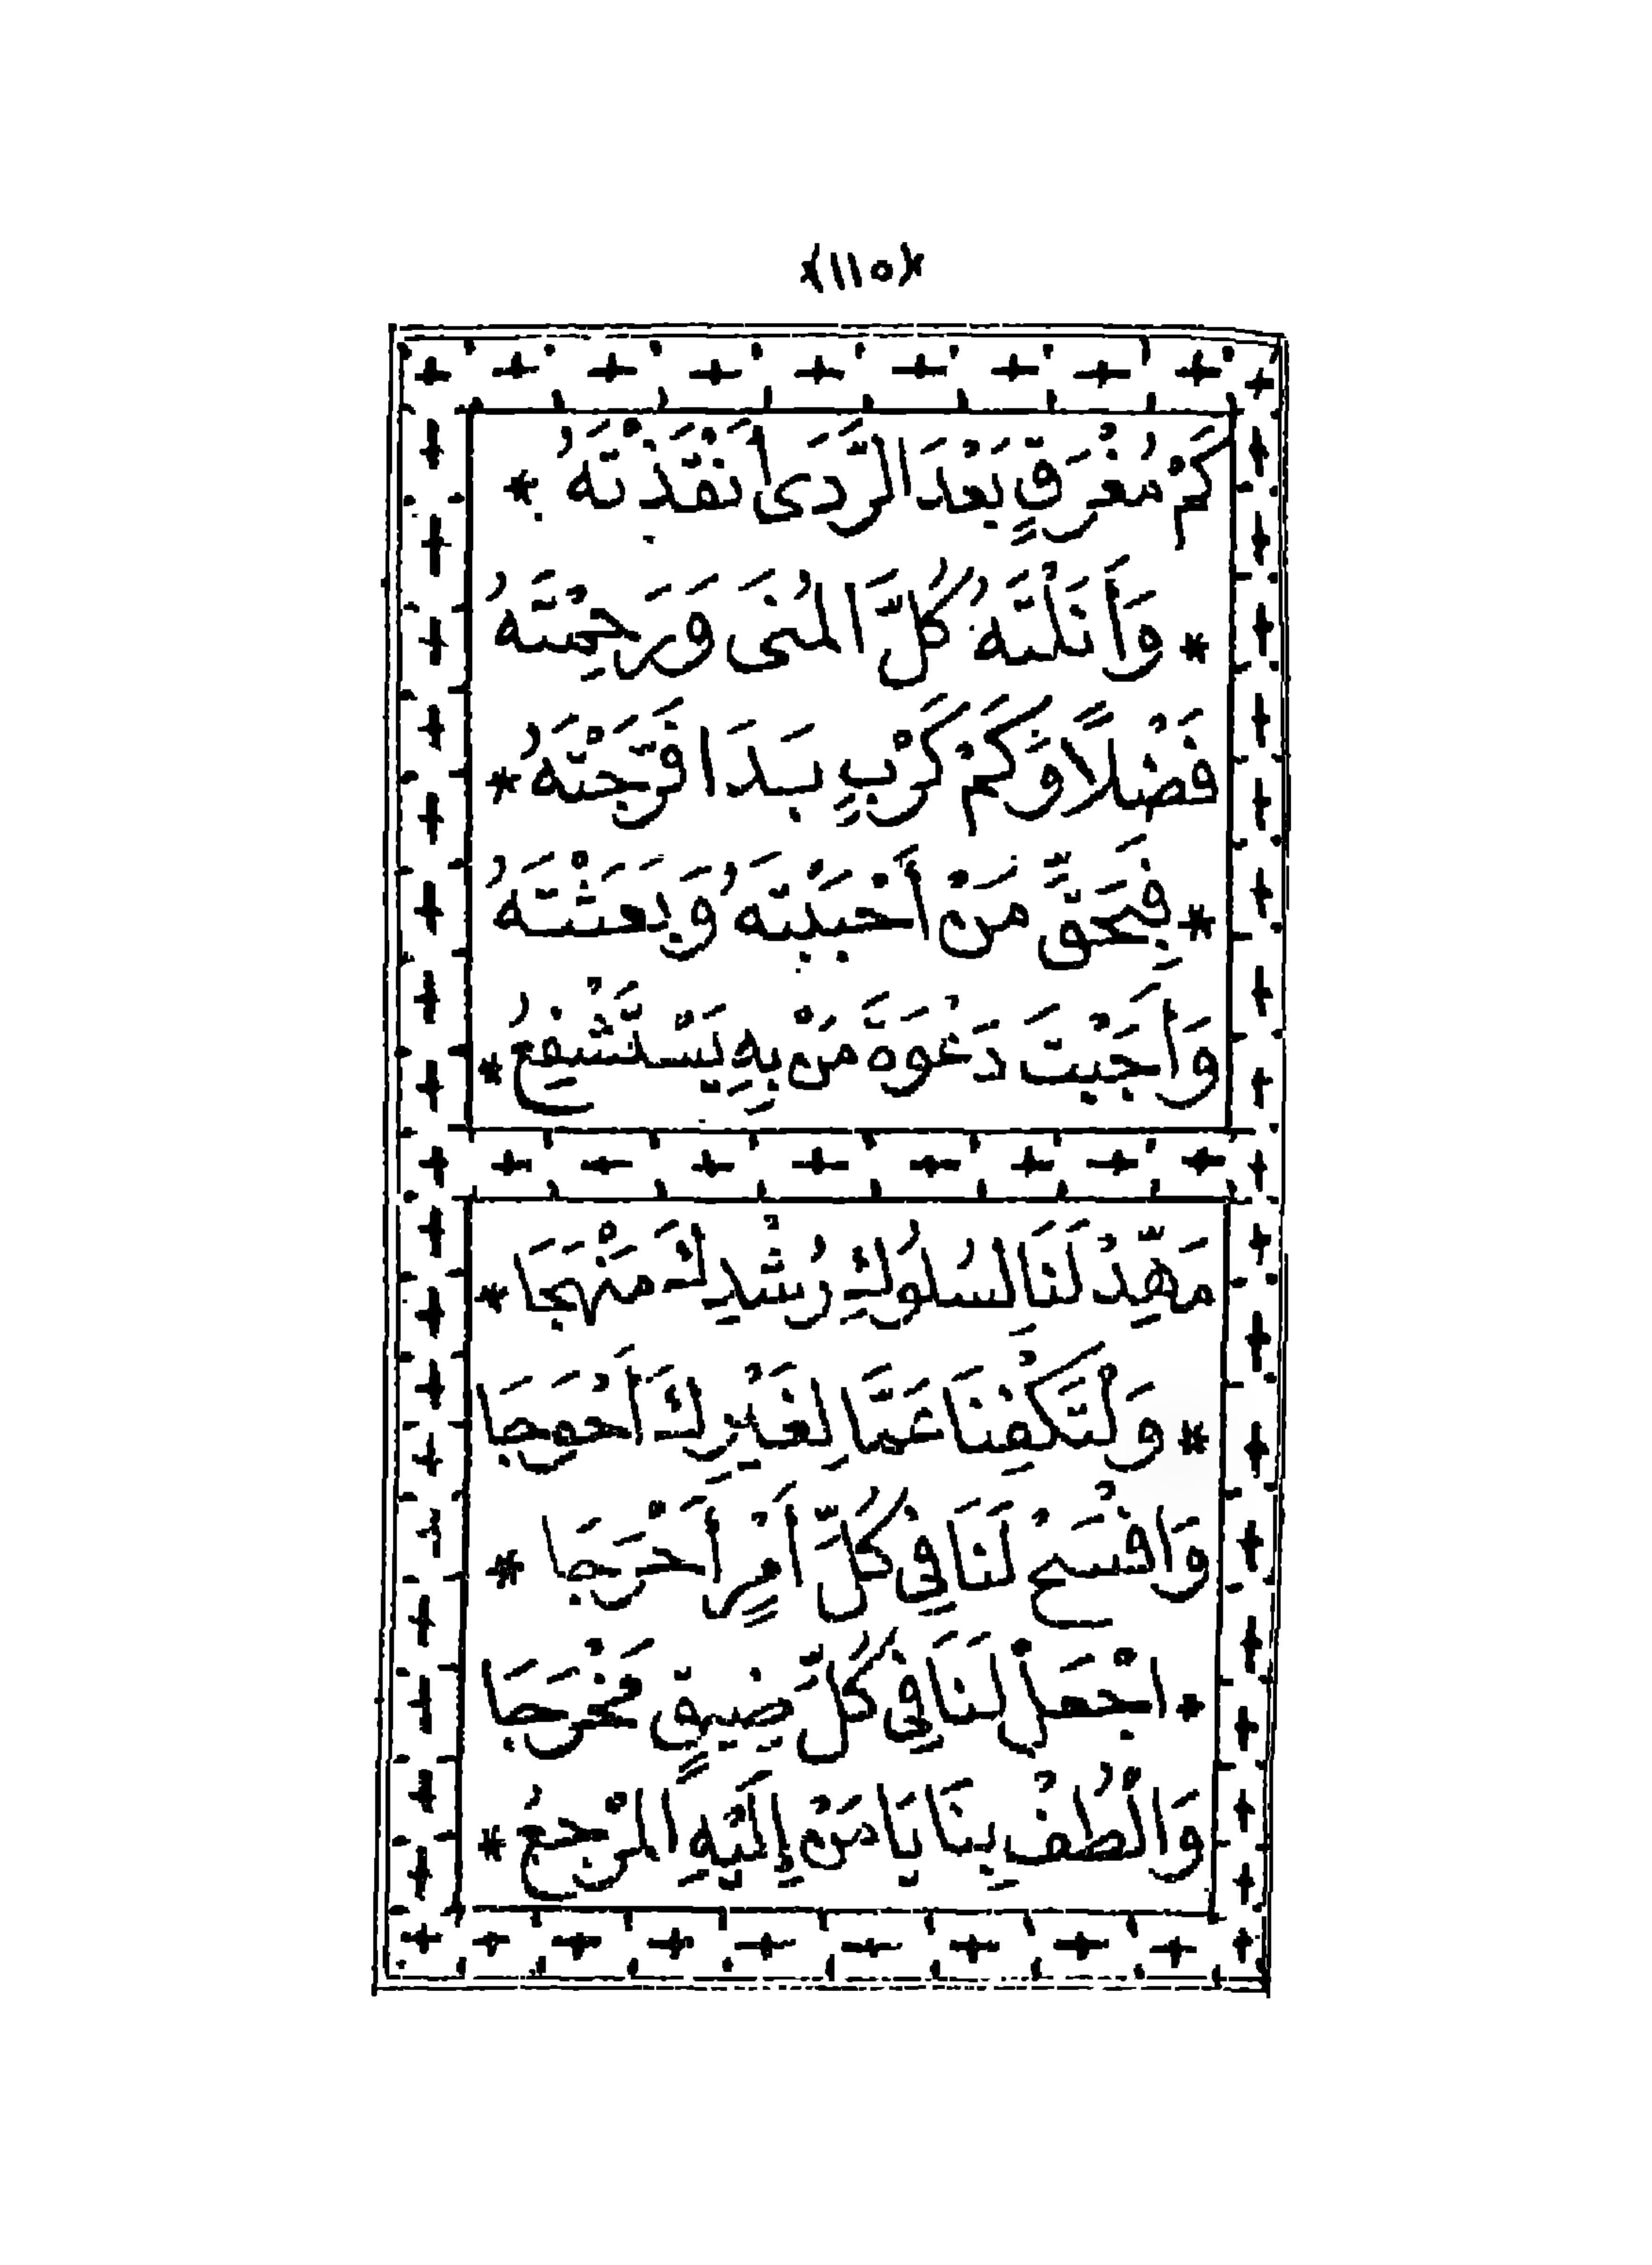 ﴿١١٥﴾
كَمْ مُغْرَقٍ بَعْدَ الرَّدَى أَنْقَذْتَهُ *
* وَأَنَلْتَهُ كُلَّ الْمُنَى وَرَحِمْتَهُ
فَضْلًا وَكَمْ كَرْبٍ بَدَا فَرَّجْتَهُ *
* فَبِحَقِّ مَنْ أَحْبَبْتَهُ وَبَعَثْتَهُ
وَأَجَبْتَ دَعْوَةَ مَنْ بِهِ يَسْتَشْفِعُ *
مَهِّدْ لَنَا لِسُلُوكِ رُشْدِكَ مَنْهَجَا *
* وَلْتَكْفِنَا عَمَّا لِغَيْرِكَ أَحْوَجَا
وَافْسَحْ لَنَا فِي كُلِّ أَمْرٍ أَحْرَجَا *
* اجْعَلْ لَنَا فِي كُلِّ ضِيقٍ مَخْرَجَا
وَالْطُفْ بِنَا يَا مَنْ إِلَيْهِ الْمَرْجِعُ *